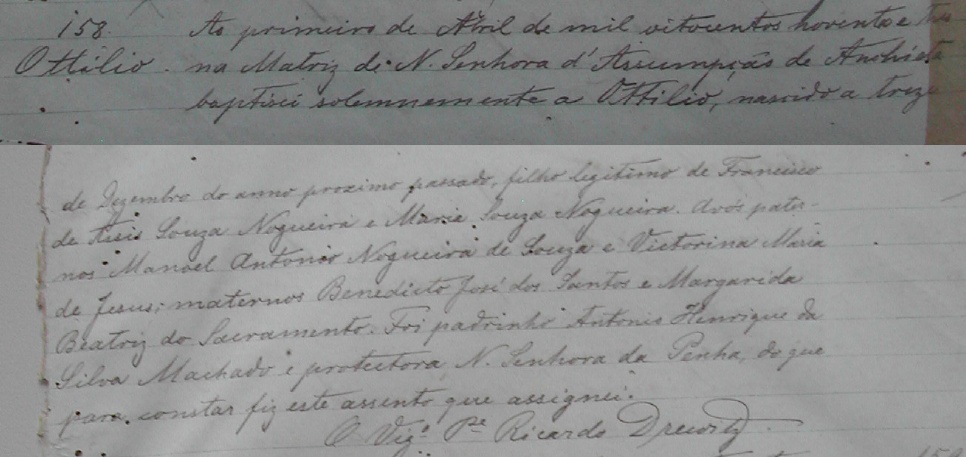 158. Ao primeiro de Abril de mil oitocentos noventa e tres
Ottilio. na Matriz de N. Senhora d'Assumpção de Anchieta
baptisei solemnemente a Ottilio, nascido a treze
de Dezembro do anno proximo passado, filho legitimo de Francisco
de Souza Nogueira e Maria Souza Nogueira. Avós pater-
nos Manoel Antonio Nogueira de Souza e Victorina Maria
de Jesus; maternos Benedicto José dos Santos e Margarida
Beatriz do Sacramento. Foi padrinho Antonio Henrique da
Silva Machado e protectora N. Senhora da Penha, do que
para constar fiz este assento que assignei.
O Vigº Pe Ricardo Drewitz
159